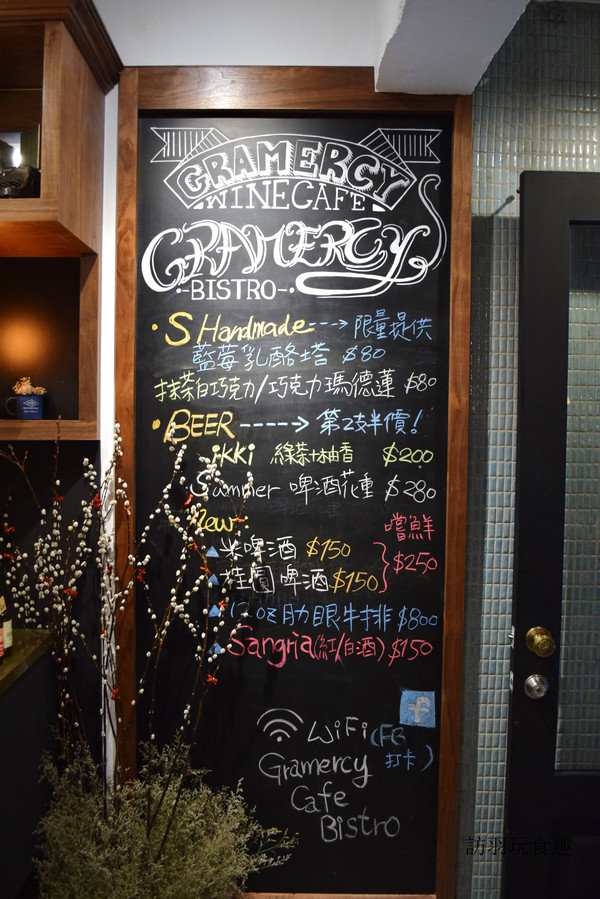 GRAMERCY
WINECAFE
GRAMERCY
BISTRO
S Handmade---> 限量提供
藍莓乳酪塔 $80
抹茶白巧克力/巧克力瑪德蓮 $80
BEER----> 第2支半價!
ikki 綠茶+柚香 $200
Summer 啤酒花重 $280
New~
嚐鮮
米啤酒 $150
$250
桂圓啤酒 $150
12 oz 肋眼牛排 $800
Sangria(紅/白酒) $150
f
WiFi (FB
打卡)
Gramercy
Cafe
Bistro
訪羽玩食趣